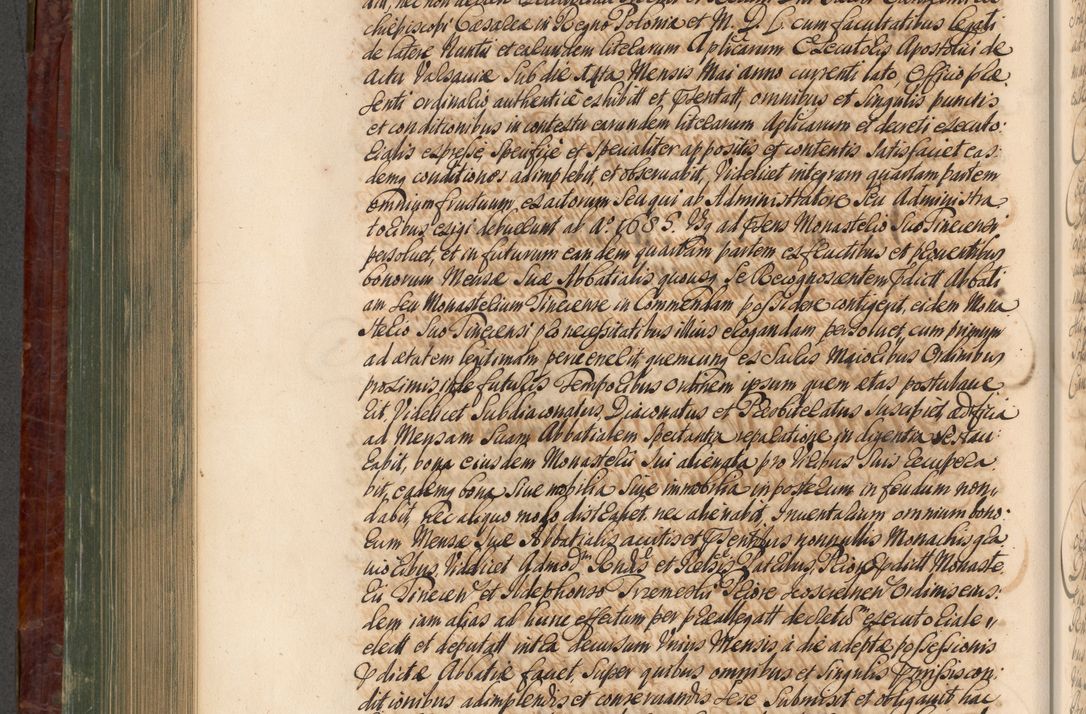 chiepiscopi Cæsareæ in Regno Poloniæ et M. D. L. cum facultatibus Legati
de latere Nuntii et earundem literarum Aplicarum Executoris Apostolici de
acta Varsaviæ sub die Mensis Mai anno currenti lato, Officio præ
senti ordinario authenticè exhibitt et Psentatt, omnibus et singulis punctis
et conditionibus in contextu earundem literarum Aplicarum et decreti executo:
rialis expresse, specifice et specialiter appositis et contentis satisfaciet eas:
demq conditiones adimplebit, et observabit, Videlicet integram quartam partem
omnium fructuum, exactorum seu qui ab Administratore seu Administra
toribus exigi debuerunt ab Aº 1685. Usq ad Psens Monasterio suo Tinecensi
persolvet, et in futurum eandem quartam partem ex fructibus et proventibus
bonorum Mensæ suæ Abbatialis quousq se Recognoscentem Pdictt Abbati
am seu Monasterium Tinecense in Commendam possidere contigerit, eidem Mona
sterio suo Tinecensi pro necessitatibus illius erogandam persolvet, cum primum
ad ætatem legitimam pervenerit quemcunq ex Sacris Maioribus Ordinibus
proximis inde futuris Temporibus Ordinem ipsum quem etas postulave
rit Videlicet Subdiaconatus Diaconatus et Presbiteratus suscipiet ædificia
ad Mensam suam Abbatialem spectantia reparatione indigentia restau
rabit, bona eiusdem Monasterii sui alienata pro Viribus suis recupera
bit, eademq bona sive mobilia sive immobilia in posterum in feudum non
dabit, nec aliquo modo distrahet nec alienabit, Inventarium omnium bono:
rum Mensæ suæ Abbatialis accitis et Psentibus nonnullis Monachis gra
vioribus Videlicet Admod Rndis et Relsis Patribus, Priore Pdictt Monaste
rii Tinecen et Ildephonso Trzemeski Priore Ordinis eius:
dem iam alias ad hunc effectum per præallegatt decretu executoriale
electt et deputatt intra decursum Unius Mensis à die adeptæ possessionis
Pdictæ Abbatiæ faciet, super quibus omnibus et singulis Pmissis con
ditionibus adimplendis et conservandis sese submisit et obligavit hac